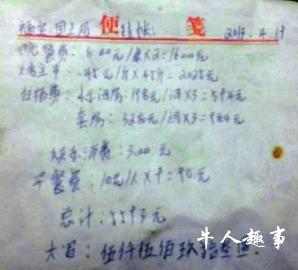 便 笺
2013.4.19
晚餐费: 800元/桌×2=1600元
45元/斤×45斤=2025元
住宿费: 标间: 198元/间×3=594元
套房: 328元/间×3=984元
娱乐消费: 300元
早餐费: 10元/人×9=90元
总计: 5593元
大写: 伍仟伍佰玖拾叁
牛人趣事